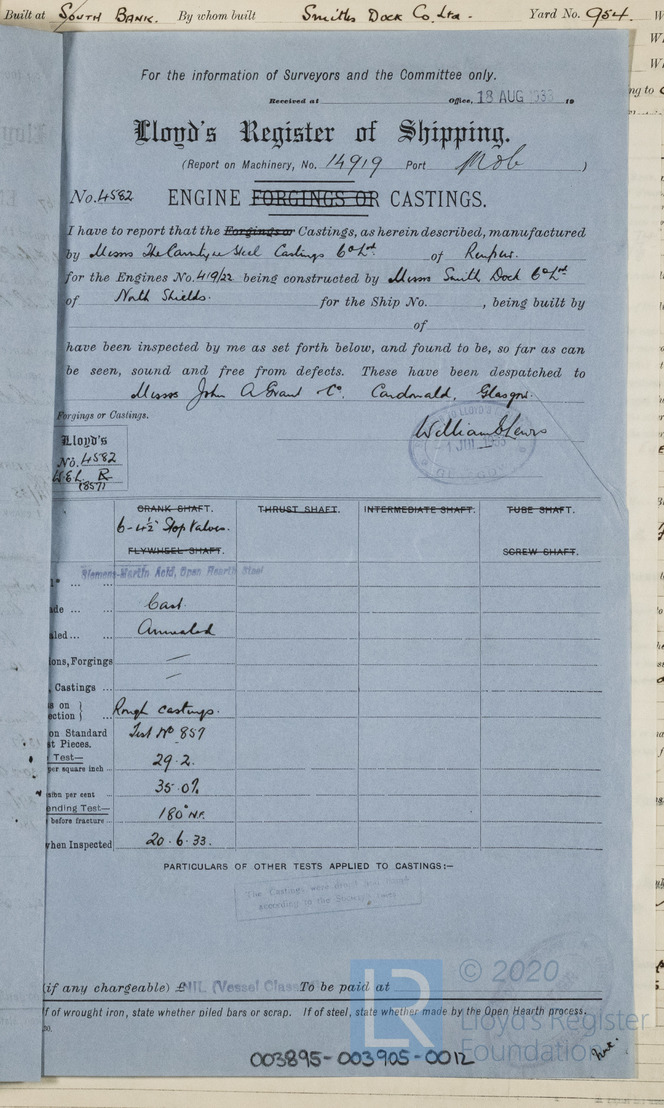 Built at South Bank. By whom built Smiths Dock Co. Ltd. Yard No. 954.
For the information of Surveyors and the Committee only.
Received at Office, 18 AUG 1933 19
Lloyd's Register of Shipping.
(Report on Machinery, No. 14919 Port Mob )
No. 4582 ENGINE FORGINGS OR CASTINGS.
I have to report that the Forgings or Castings, as herein described, manufactured
by Messrs The Carntyne Steel Castings Co Ld of Renfrew.
for the Engines No. 419/22 being constructed by Messrs Smith Dock Co Ld
of North Shields. for the Ship No. , being built by
of
have been inspected by me as set forth below, and found to be, so far as can
be seen, sound and free from defects. These have been despatched to
Messrs John A Grant & Co. Cardonald, Glasgow.
Forgings or Castings.
William S Lewis
Lloyd's
No. 4582
R
(857)
CRANK SHAFT. THRUST SHAFT. INTERMEDIATE SHAFT. TUBE SHAFT.
6-4½" Stop Valves.
FLYWHEEL SHAFT. SCREW SHAFT.
Siemens-Martin Acid, Open Hearth Steel
Cast.
Annealed
ions, Forgings —
, Castings ... —
Rough castings.
on Standard Test No 857
t Pieces.
Test—
per square inch ... 29.2.
per cent 35.0%
ending Test—
before fracture ... 180° N.F.
when Inspected 20.6.33.
PARTICULARS OF OTHER TESTS APPLIED TO CASTINGS:—
The Castings were
according to the
(if any chargeable) £ NIL (Vessel Class To be paid at
f of wrought iron, state whether piled bars or scrap. If of steel, state whether made by the Open Hearth process.
LR © 2020
Lloyd's Register
Foundation
003895-003905-0012